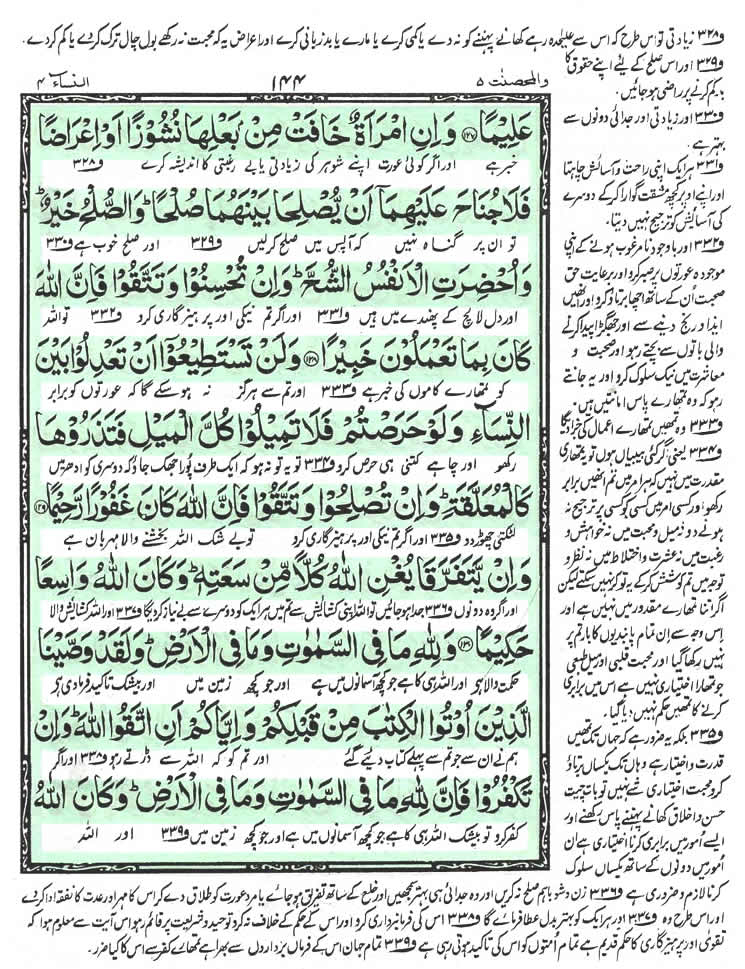 ف۳۲۸ زیادتی تو اس طرح کہ اس سے علیحدہ رہے کھانے پہننے کو نہ دے یا کمی کرے یا مارے یا بدزبانی کرے اور اعراض یہ کہ محبت نہ رکھے بول چال ترک کردے یا کم کردے۔
والمحصنٰت ۵
۱۴۴
النساء ۴
عَلِیْمًا ﴿۱۲۷﴾ وَاِنِ امْرَاَةٌ خَافَتْ مِنْۢ بَعْلِهَا نُشُوْزًا اَوْ اِعْرَاضًا
خبر ہے اور اگر کوئی عورت اپنے شوہر کی زیادتی یا بے رغبتی کا اندیشہ کرے ف۳۲۸
فَلَا جُنَاحَ عَلَیْهِمَاۤ اَنْ یُّصْلِحَا بَیْنَهُمَا صُلْحًا ؕ وَالصُّلْحُ خَیْرٌ ؕ
تو ان پر گناہ نہیں کہ آپس میں صلح کرلیں ف۳۲۹ اور صلح خوب ہے ف۳۳۰
وَاُحْضِرَتِ الْاَنْفُسُ الشُّحَّ ؕ وَاِنْ تُحْسِنُوْا وَتَتَّقُوْا فَاِنَّ اللّٰهَ
اور دل لالچ کے پھندے میں ہیں ف۳۳۱ اور اگر تم نیکی اور پرہیزگاری کرو ف۳۳۲ تو اللہ
كَانَ بِمَا تَعْمَلُوْنَ خَبِیْرًا ﴿۱۲۸﴾ وَلَنْ تَسْتَطِیْعُوْۤا اَنْ تَعْدِلُوْا بَیْنَ
کو تمھارے کاموں کی خبر ہے ف۳۳۳ اور تم سے ہرگز نہ ہوسکے گا کہ عورتوں کو برابر
النِّسَآءِ وَلَوْ حَرَصْتُمْ فَلَا تَمِیْلُوْا كُلَّ الْمَیْلِ فَتَذَرُوْهَا
رکھو اور چاہے کتنی ہی حرص کرو ف۳۳۴ تو یہ تو نہ ہو کہ ایک طرف پورا جھک جاؤ کہ دوسری کو ادھر میں
كَالْمُعَلَّقَةِ ؕ وَاِنْ تُصْلِحُوْا وَتَتَّقُوْا فَاِنَّ اللّٰهَ كَانَ غَفُوْرًا رَّحِیْمًا ﴿۱۲۹﴾
لٹکتی چھوڑ دو ف۳۳۵ اور اگر تم نیکی اور پرہیزگاری کرو تو بے شک اللہ بخشنے والا مہربان ہے
وَاِنْ یَّتَفَرَّقَا یُغْنِ اللّٰهُ كُلًّا مِّنْ سَعَتِهٖ ؕ وَكَانَ اللّٰهُ وَاسِعًا
اور اگر وہ دونوں ف۳۳۶ جدا ہوجائیں تو اللہ اپنی کشایش سے تم میں ہر ایک کو دوسرے سے بے نیاز کردیگا ف۳۳۷ اور اللہ کشایش والا
حَكِیْمًا ﴿۱۳۰﴾ وَلِلّٰهِ مَا فِی السَّمٰوٰتِ وَمَا فِی الْاَرْضِ ؕ وَلَقَدْ وَصَّیْنَا
حکمت والا ہے اور اللہ ہی کا ہے جو کچھ آسمانوں میں ہے اور جو کچھ زمین میں اور بیشک تاکید فرمادی ہے
الَّذِیْنَ اُوْتُوا الْكِتٰبَ مِنْ قَبْلِكُمْ وَاِیَّاكُمْ اَنِ اتَّقُوا اللّٰهَ ؕ وَاِنْ
ہم نے ان سے جو تم سے پہلے کتاب دیئے گئے اور تم کو کہ اللہ سے ڈرتے رہو ف۳۳۸ اور اگر
تَكْفُرُوْا فَاِنَّ لِلّٰهِ مَا فِی السَّمٰوٰتِ وَمَا فِی الْاَرْضِ ؕ وَكَانَ اللّٰهُ
کفر کرو تو بیشک اللہ ہی کا ہے جو کچھ آسمانوں میں ہے اور جو کچھ زمین میں ف۳۳۹ اور اللہ
ف۳۲۹ اور اس صلح کے لیئے اپنے حقوق کا
بار کم کرنے پر راضی ہوجائیں۔
ف۳۳۰ اور زیادتی اور جدائی دونوں سے
بہتر ہے۔
ف۳۳۱ ہر ایک اپنی راحت و آسائش چاہتا
اور اپنے اوپر کچھ مشقت گوارا کرکے دوسرے
کی آسائیش کو ترجیح نہیں دیتا۔
ف۳۳۲ اور باوجود نامرغوب ہونے کے اپنی
موجودہ عورتوں پر صبر کرو اور برعایت حق
صحبت اُن کے ساتھ اچھا برتاؤ کرو اور انھیں
ایذا و رنج دینے سے اور جھگڑا پیدا کرنے
والی باتوں سے بچتے رہو اور صحبت و
معاشرت میں نیک سلوک کرو اور یہ جانتے
رہو کہ وہ تمھارے پاس امانتیں ہیں۔
ف۳۳۳ وہ تمھیں تمھارے اعمال کی جزا دیگا
ف۳۳۴ یعنی اگر کئی بیبیاں ہوں تو یہ تمھاری
مقدرت میں نہیں کہ ہر امر میں تم انھیں برابر
رکھو اور کسی امر میں کسی کو کسی پر ترجیح نہ
ہونے دو نہ میل و محبت میں نہ خواہش و
رغبت میں نہ عشرت و اختلاط میں نہ نظر و
توجہ میں تم کوشش کرکے یہ تو کر نہیں سکتے لیکن
اگر اتنا تمھارے مقدور میں نہیں ہے اور
اس وجہ سے ان تمام پابندیوں کا بار تم پر
نہیں رکھا گیا اور محبت قلبی اور میل طبعی
جو تمھارا اختیاری نہیں ہے اس میں برابری
کرنے کا تمھیں حکم نہیں دیا گیا۔
ف۳۳۵ بلکہ یہ ضرور ہے کہ جہاں تک تمھیں
قدرت و اختیار ہے وہاں تک یکساں برتاؤ
کرو محبت اختیاری شے نہیں تو بات چیت
حسن و اخلاق کھانے پہننے پاس رکھنے اور
ایسے اُمور میں برابری کرنا اختیاری ہے ان
اُمور میں دونوں کے ساتھ یکساں سلوک
کرنا لازم و ضروری ہے ف۳۳۶ زن و شو باہم صلح نہ کریں اور وہ جدائی ہی بہتر سمجھیں اور خلع کے ساتھ تفریق ہوجائے یا مرد عورت کو طلاق دے کر اس کا مہر اور عدت کا نفقہ ادا کردے
اور اس طرح وہ ف۳۳۷ اور ہر ایک کو بہتر بدل عطا فرمائے گا ف۳۳۸ اس کی فرمانبرداری کرو اور اس کے حکم کے خلاف نہ کرو توحید و شریعت پر قائم رہو اس آیت سے معلوم ہوا کہ
تقویٰ اور پرہیزگاری کا حکم قدیم ہے تمام اُمتوں کو اس کی تاکید ہوتی رہی ہے ف۳۳۹ تمام جہان اس کے فرماں برداروں سے بھرا ہے تمھارے کفر سے اس کا کیا ضرر۔